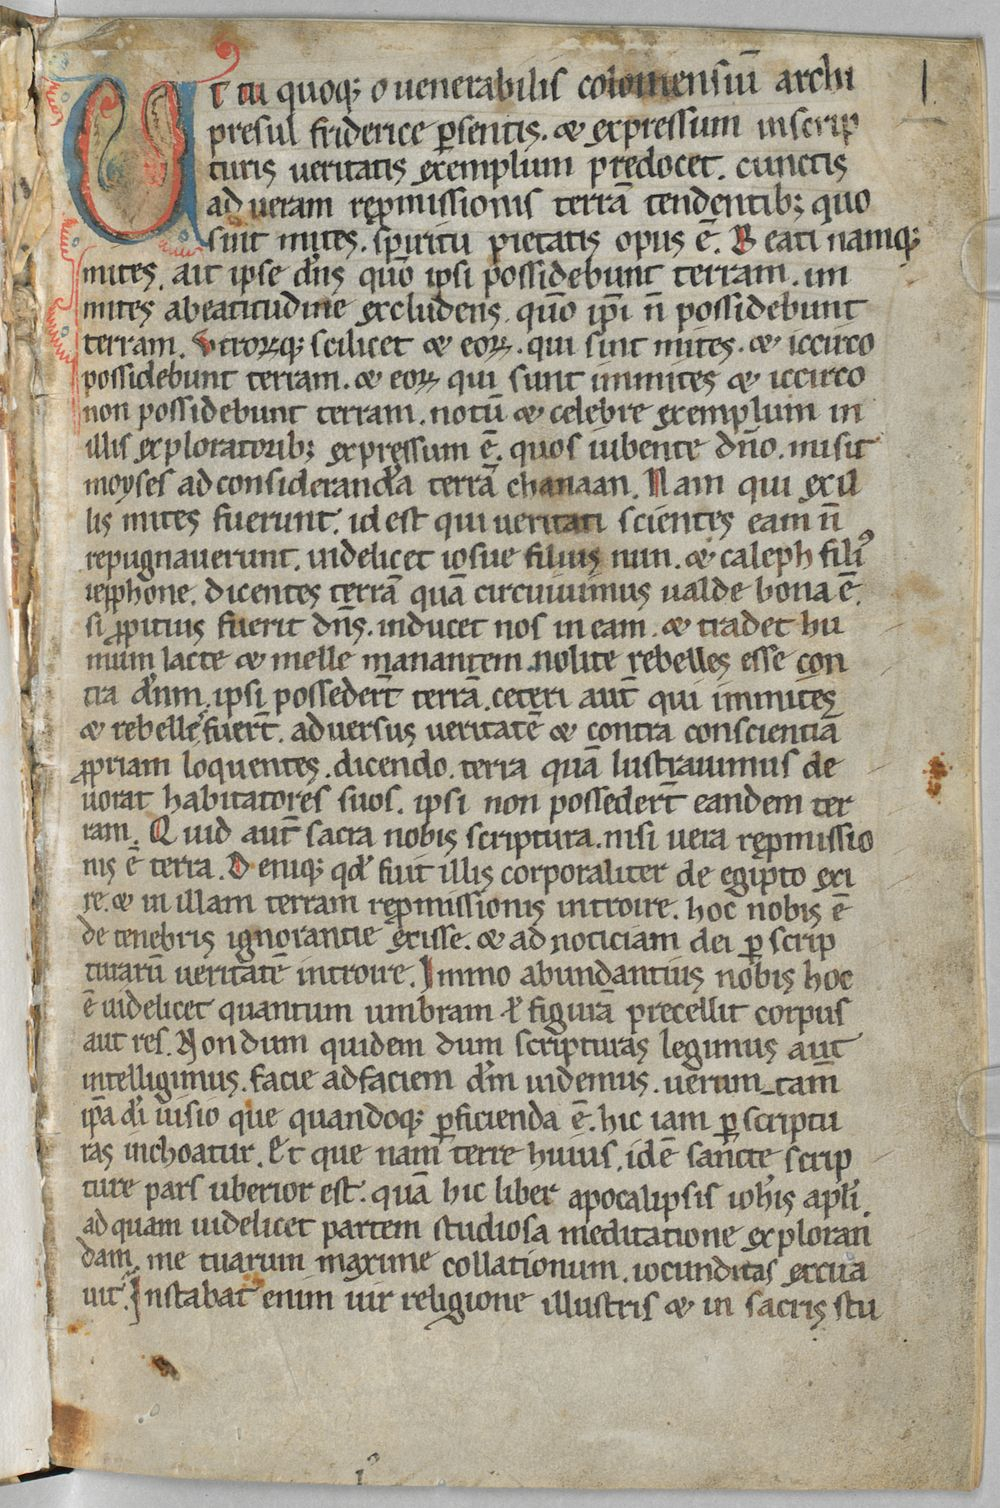 Ut tu quoq; o uenerabilis coloniensiū archi
presul friderice p̄sentis. & expressum in scrip
turis ueritatis exemplum predocet. cunctis
ad ueram rep̱missionis terrā tendentib; quo
sint mites. spiritu pietatis opus ē. Beati namq;
mites. ait ipse dn̄s quō ipsi possidebunt terram. im
mites a beatitudine excludens. quō ip̄i n̄ possidebunt
terram. Utrorꝝq; scilicet & eoꝝ. qui sint mites. & iccirco
possidebunt terram. & eoꝝ qui sunt immites & iccirco
non possidebunt terram. notū & celebre exemplum in
illis exploratorib; expressum ē. quos iubente dn̄o. misit
moyses ad considerandā terrā chanaan. Nam qui ex il
lis mites fuerunt. id est qui ueritati scientes eam n̄
repugnauerunt. uidelicet iosue filius nun. & caleph filiꝰ
iepphone. dicentes terrā quā circuiuimus ualde bona ē.
si ꝓpitius fuerit dn̄s. inducet nos in eam. & tradet hu
mum lacte & melle manantem nolite rebelles esse con
tra dn̄m. ipsi possedert̄ terrā. ceteri aut̄ qui immites
& rebelles fuert̄. aduersus ueritatē & contra conscientiā
ꝓpriam loquentes. dicendo. terra quā lustrauimus de
uorat habitatores suos. ipsi non possedert̄ eandem ter
ram. Quid aut̄ sacra nobis scriptura. nisi uera rep̱missio
nis ē terra. Deniq; qd̄ fuit illis corporaliter de egipto exi
re. & in illam terram rep̱missionis introire. hoc nobis ē
de tenebris ignorantie exisse. & ad noticiam dei ꝑ scrip
turarū ueritatē introire. Immo abundantius nobis hoc
ē uidelicet quantum umbram ł figurā precellit corpus
aut res. Nondum quidem dum scripturas legimus aut
intelligimus. facie ad faciem dm̄ uidemus. uerum tam̄
ip̄a di uisio que quandoq; ꝑficienda ē. hic iam ꝑ scriptu
ras inchoatur. Et que nam terre huius. idē sancte scrip
ture pars uberior est. quā hic liber apocalipsis ioh̄is apl̄i.
ad quam uidelicet partem studiosa meditatione exploran
dam. me tuarum maxime collationum. iocunditas excita
uit. Instabat enim uir religione illustris & in sacris stu